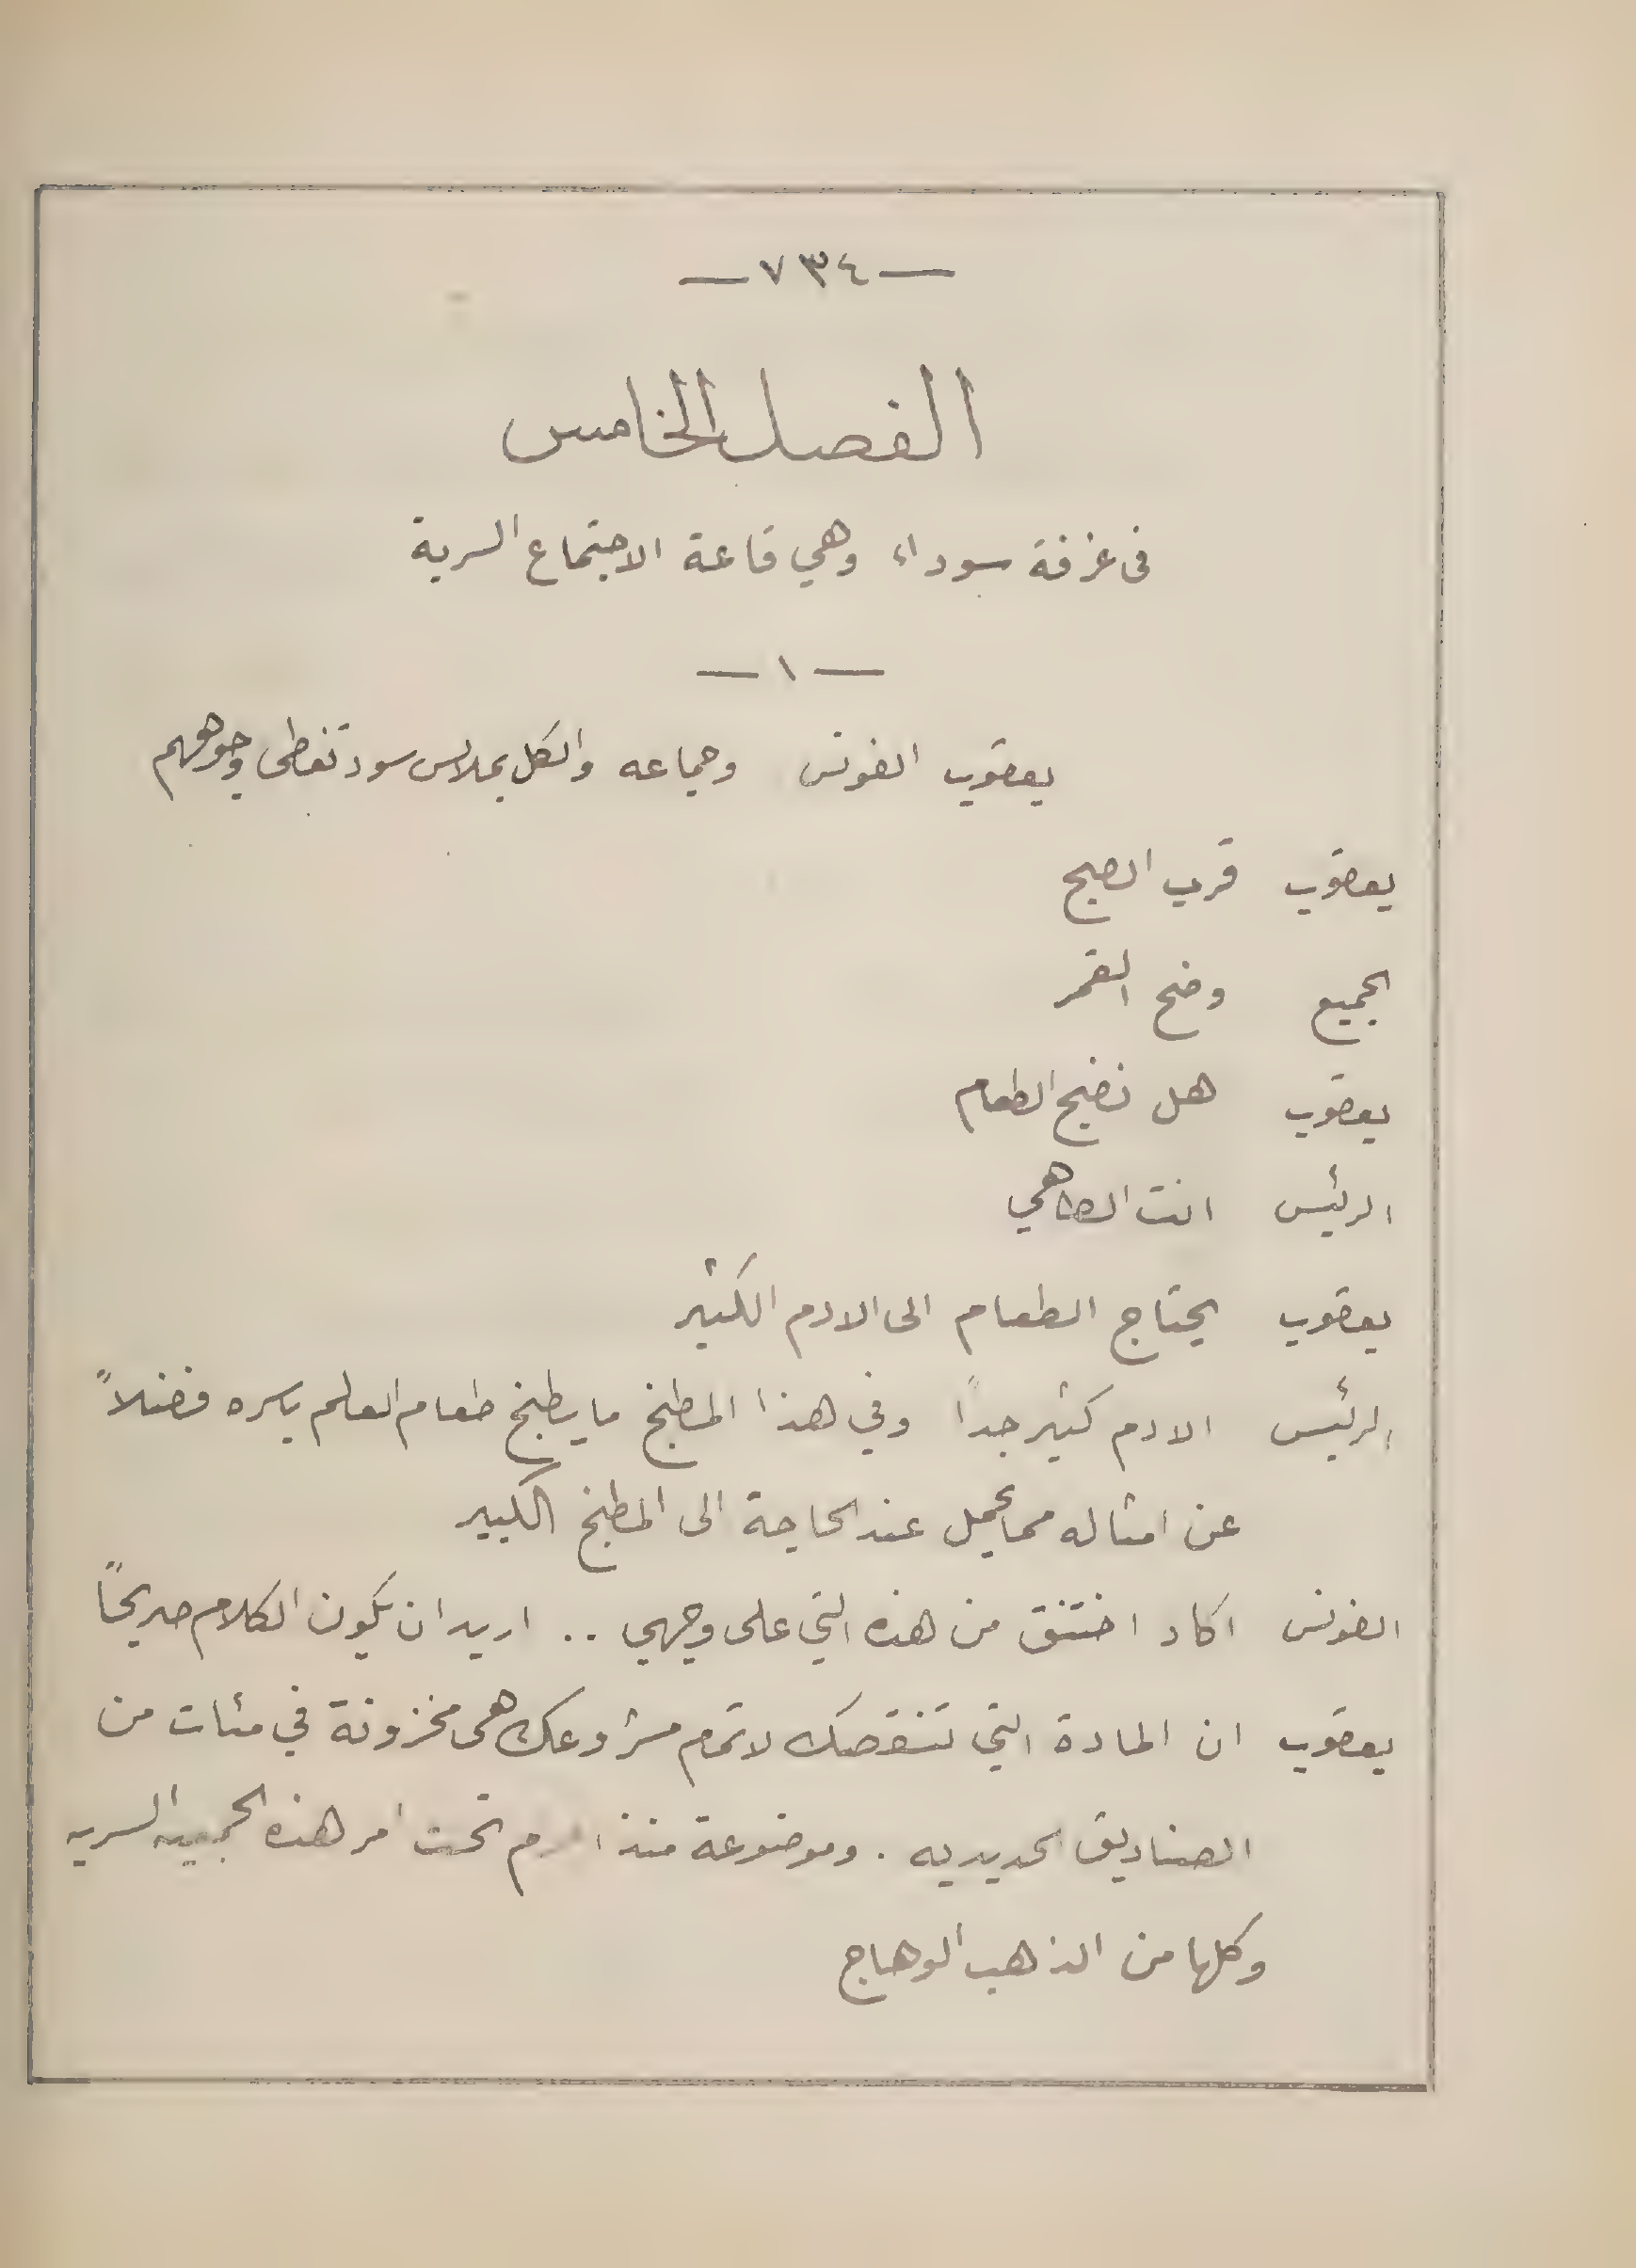 — ٧٣٤ —
الفصل الخامس
فى غرفة سوداء وهي قاعة الاجتماع السرية
— ١ —
يعقوب الفونس وجماعه والكل بملابس سود تغطى وجوههم
يعقوب قرب الصبح
الجميع وضح القمر
يعقوب هل نضج الطعام
الرئيس انت الطاهي
يعقوب يحتاج الطعام الى الادم الكثير
الرئيس الادم كثير جداً وفي هذا المطبخ ما يطبخ طعام العلم باسره فضلاً
عن امثاله مما يحمل عند الحاجة الى المطبخ الكبير
الفونس اكاد اختنق من هذه التي على وجهي .. اريد ان يكون الكلام صريحاً
يعقوب ان المادة التي تنقصك لاتمام مشروعك هى مخزونة في مئات من
الصناديق الحديديه . وموضوعة منذ تحت امر هذه الجمعيه السريه
وكلها من الذهب الوهاج